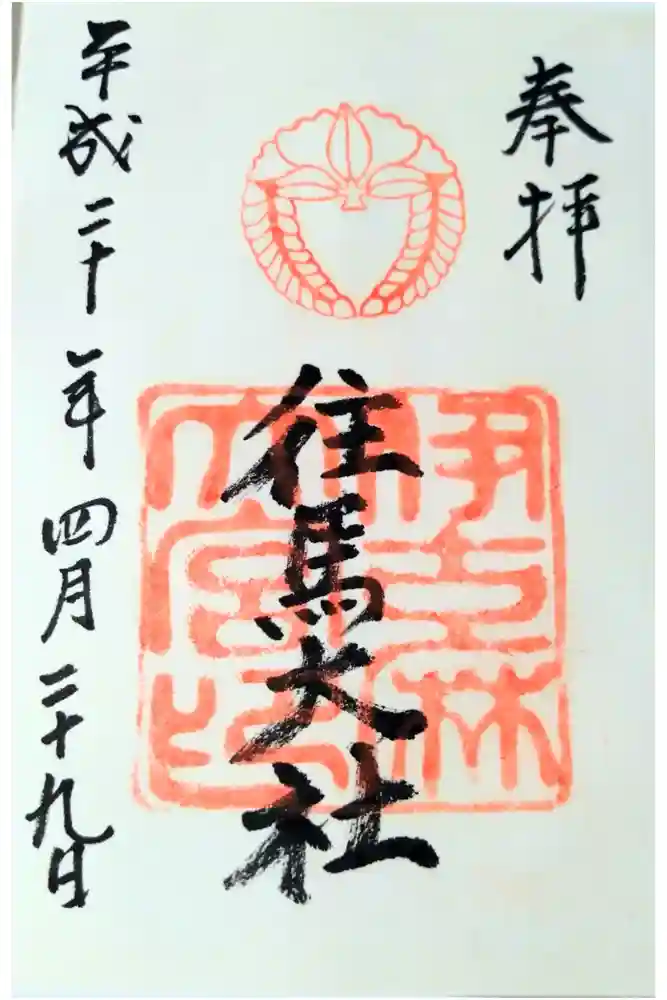 奉拝
往馬大社
平成二十年四月二十九日